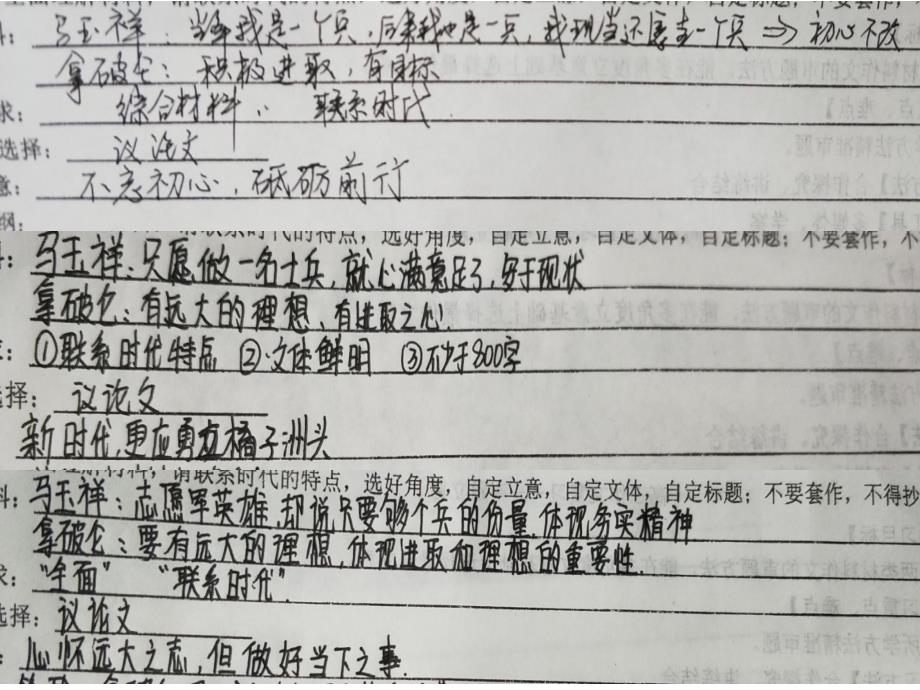 马玉祥：当年我是一个兵，后来我也是一兵，我现当还愿去一个兵 ⇒ 初心不改
拿破仑：积极进取，有目标
求：综合材料：联系时代.
选择：议论文
意：不忘初心，砥砺前行
纲：
时代的特点，选好角度，自定立意，自定文体，自定标题；不要套作，不
料：马玉祥：只愿做一名士兵，就心满意足了，安于现状
拿破仑：有远大的理想、有进取之心！
求：①联系时代特点 ②文体鲜明 ③不少于800字
选择：议论文
新时代，更应勇立橘子洲头
请联系时代的特点，选好角度，自定立意，自定文体，自定标题；不要套作，不得抄
料：马玉祥：志愿军英雄，却说只要够个兵的份量，体现务实精神
拿破仑：要有远大的理想，体现进取和理想的重要性.
求：“全面” “联系时代”
选择：议论文
：心怀远大之志，但做好当下之事.